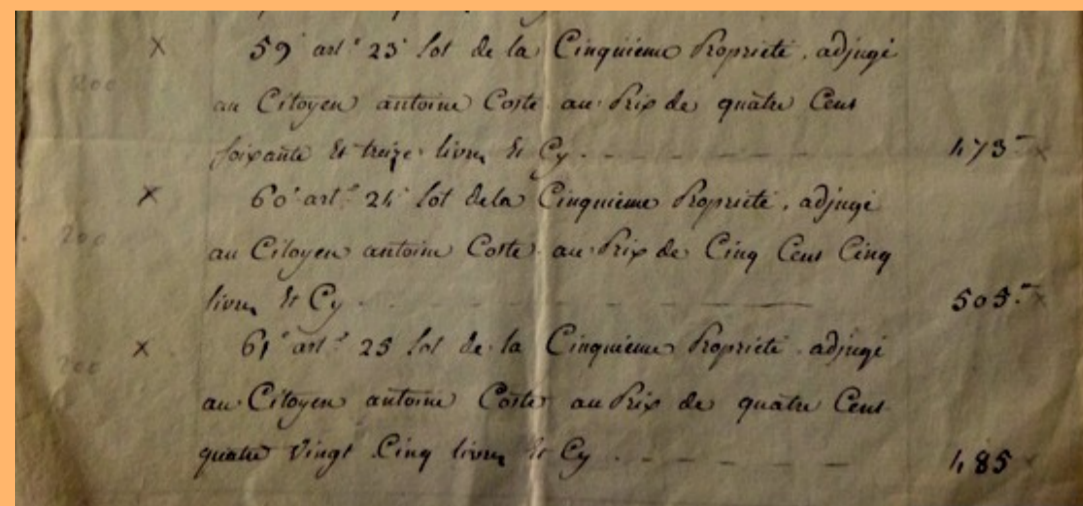 × 59e art.e 23e lot de la Cinquieme Propriété, adjugé
200 au Citoyen antoine Coste au Prix de quatre Cens
soixante et treize livres et Cy - - - - - 473 - ×
× 60e art.e 24e lot de la Cinquieme Propriété, adjugé
200 au Citoyen antoine Coste au Prix de Cinq Cens Cinq
livres Et Cy - - - - - 505 - ×
× 61e art.e 25 lot de la Cinquieme Propriété adjugé
200 au Citoyen antoine Coste au Prix de quatre Cens
quatre Vingt Cinq livres Et Cy - - - - - 485 ×